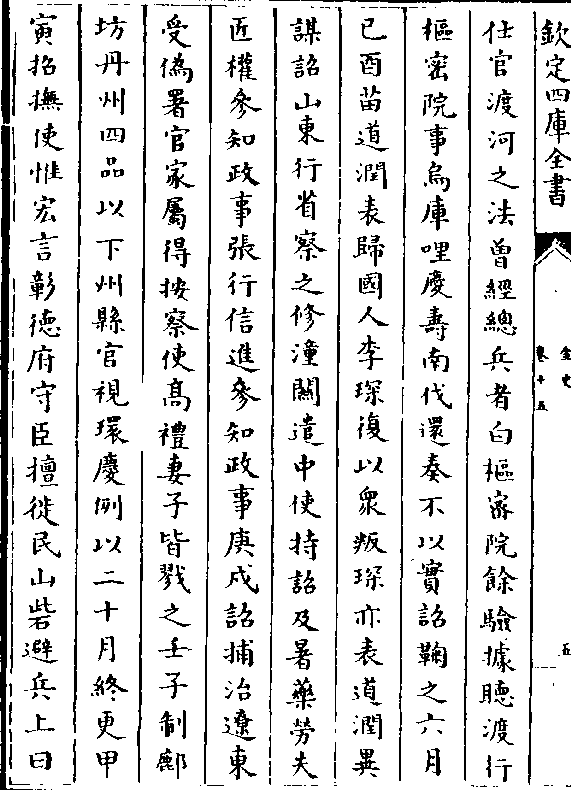 欽定四庫全書
金史
卷十五
五
仕官渡河之法曾經總兵者白樞密院餘驗據聽渡行
樞密院事烏庫哩慶壽南伐還奏不以實詔鞠之六月
已酉苗道潤表歸國人李琛復以衆叛琛亦表道潤異
謀詔山東行省察之修潼關遣中使持詔及暑藥勞夫
匠權參知政事張行信進參知政事庚戍詔捕治遼東
受偽署官家屬得按察使髙禮妻子皆戮之壬子制鄜
坊丹州四品以下州縣官視環慶例以二十月終更甲
寅招撫使惟宏言彰德府守臣擅徙民山砦避兵上曰